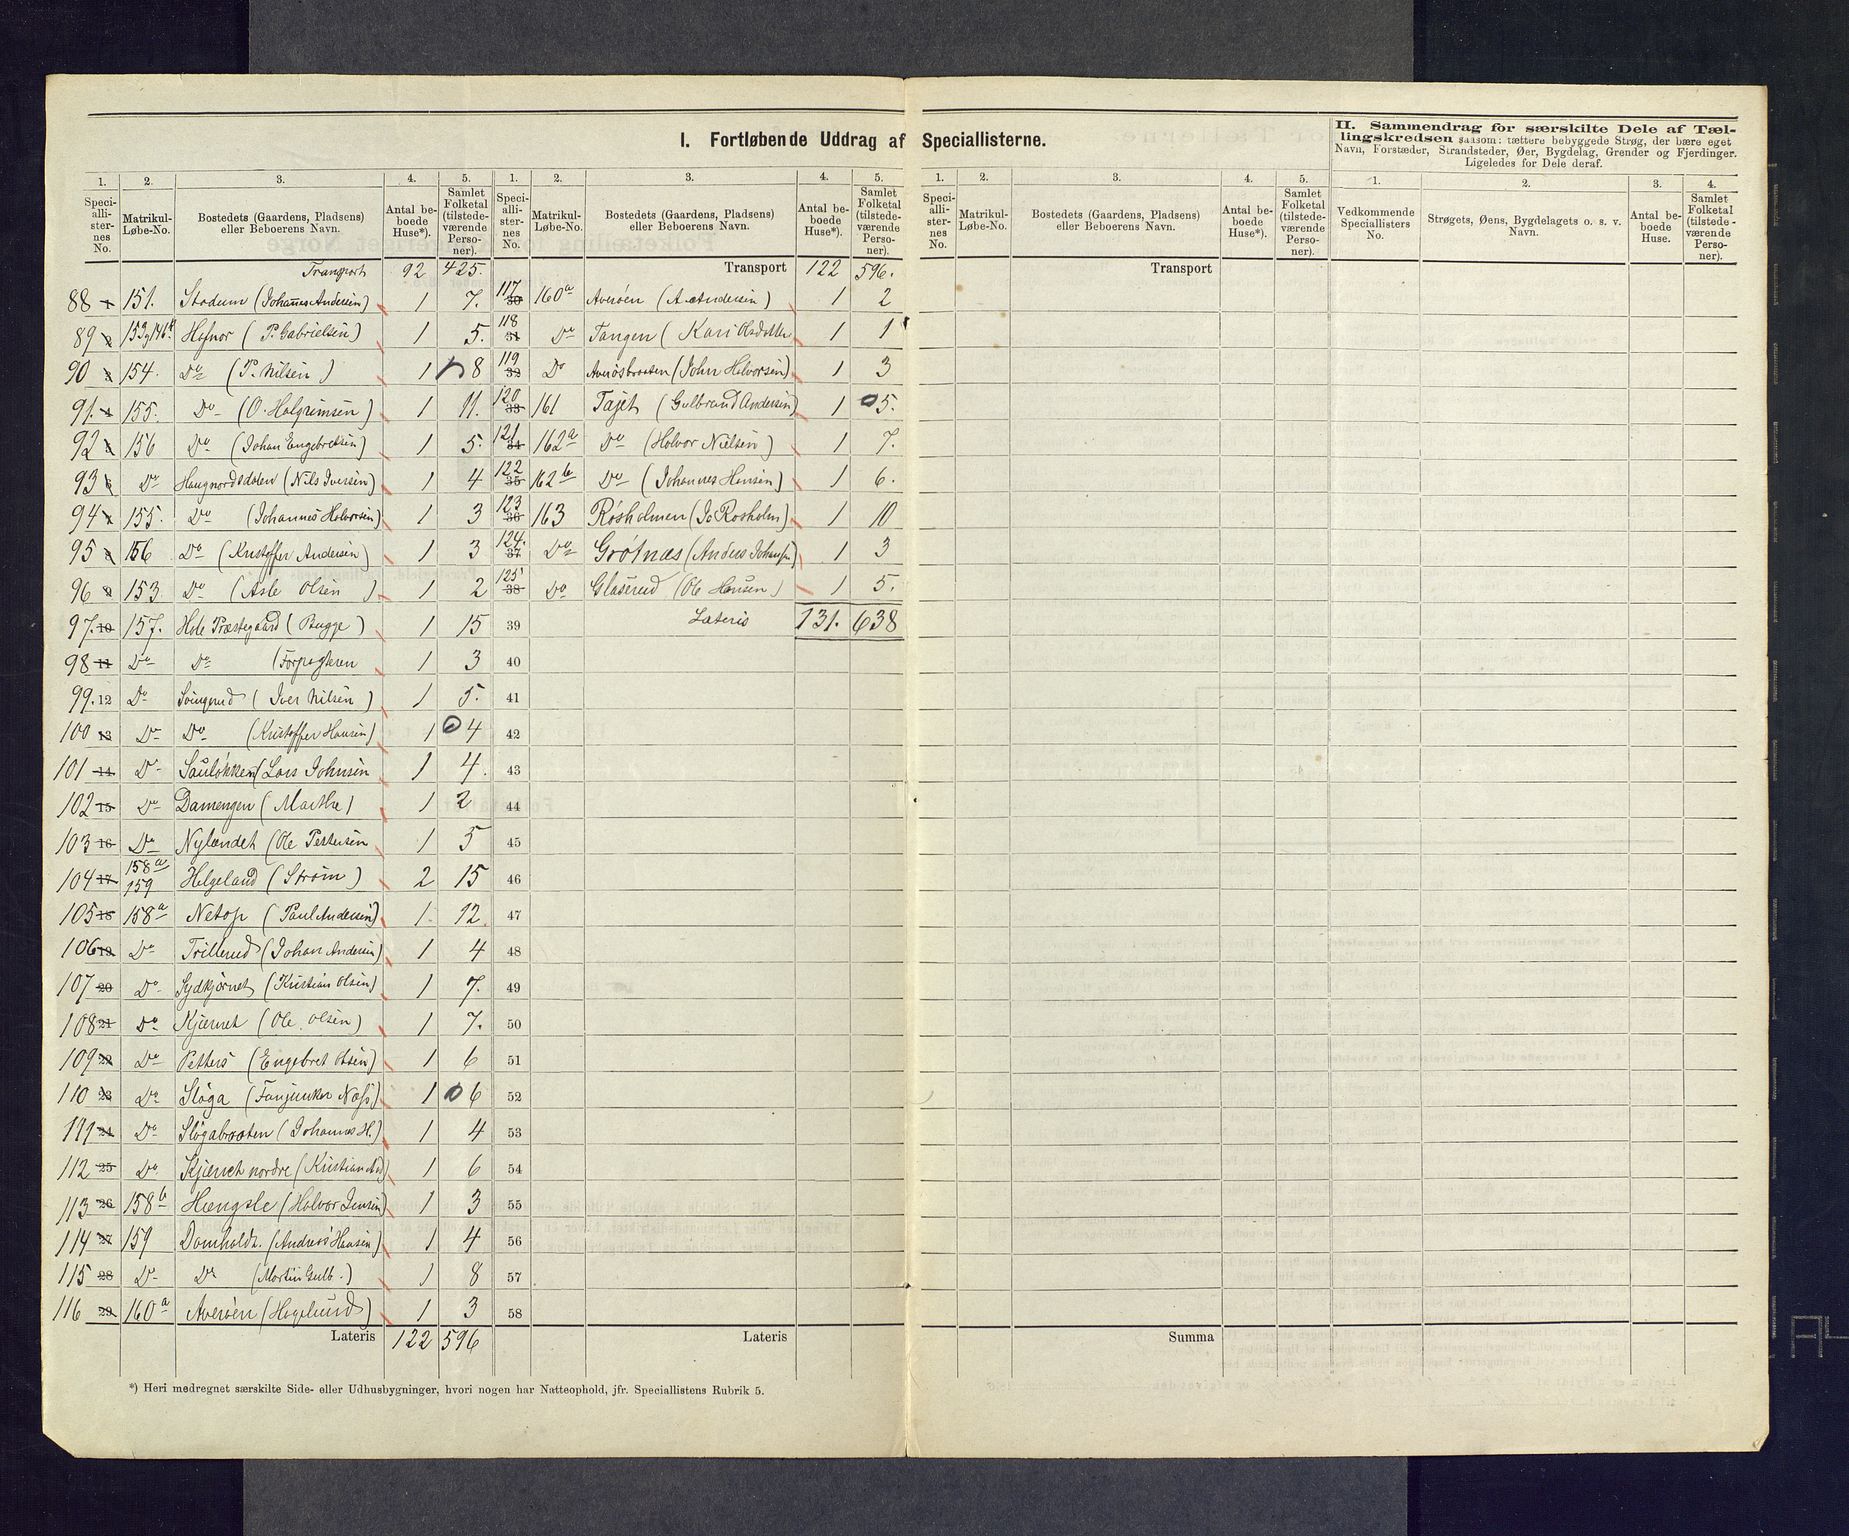 I. Fortløbende Uddrag af Speciallisterne.
II. Sammendrag for særskilte Dele af Tællingskredsen saasom: tættere bebyggede Strøg, der bære eget
Navn, Forstæder, Strandsteder, Øer, Bygdelag, Grender og Fjerdinger.
Ligeledes for Dele deraf.
1. 2. 3. 4. 5. 1. 2. 3. 4. 5. 1. 2. 3. 4. 5. 1. 2. 3. 4.
Speciallisternes No. Matrikul-Løbe-No. Bostedets (Gaardens, Pladsens) eller Beboerens Navn. Antal beboede Huse*). Samlet Folketal (tilstedeværende Personer).
Speciallisternes No. Matrikul-Løbe-No. Bostedets (Gaardens, Pladsens) eller Beboerens Navn. Antal beboede Huse*). Samlet Folketal (tilstedeværende Personer).
Speciallisternes No. Matrikul-Løbe-No. Bostedets (Gaardens, Pladsens) eller Beboerens Navn. Antal beboede Huse*). Samlet Folketal (tilstedeværende Personer).
Vedkommende Speciallisters No. Strøgets, Øens, Bygdelagets o. s. v. Navn. Antal beboede Huse. Samlet Folketal (tilstedeværende Personer).
Transport 92 425.
88 151. Stadum (Johannes Andersen) 1 7.
89 153 og 146 Hafnor (P. Gabrielsen) 1 5.
90 3 154. Do (P. Nilsen) 1 8
91. 4 155. Do (O. Halgrimsen) 1 11.
92 156 Do (Johan Engebretsen) 1 5.
93 Do Haugnordsdalen (Nils Iversen) 1 4
94 155. Do (Johannes Halvorsen) 1 3
95 156 Do (Kristoffer Andersen) 1 3
96 153. Do (Asle Olsen) 1 2
97. 10 157. Hole Præstegaard (Bugge) 1 15
98 11 Do Do (Forpagteren 1 3
99. 12 Do Svingerud (Iver Nilsen) 1 5.
100 13 Do Do (Kristoffer Hansen) 1 4
101 14 Do Sauløkken (Lars Johnsen 1 4.
102 15 Do Damengen (Marthe) 1 2
103 16 Do Nylændet (Ole Pettersen 1 5
104 17 158a 159 Helgeland (Strøm) 2 15
105 18 158a Netop (Paul Andersen) 1. 12.
106 19 Do Trillerud (Johan Andersen) 1 4
107 20 Do Sydkjørnet (Kristian Olsen) 1 7.
108 21 Do Kjærnet (Ole Olsen) 1 7.
109 22 Do Petters (Engebret Olsen) 1 6
110 23 Do Sløga (Fanjunker Næss) 1 6
111 24 Do Sløgabraaten (Johannes H.) 1 4
112 25 Do Kjærnet nordre (Kristian And) 1 6
113 26 158b Hængsle (Halvor Jensen) 1 3
114 27 159 Domholdt. (Andreas Hansen) 1 4
115 28 Do Do (Martin Gulb.) 1 8
116 29 160a Averøen (Hagelund) 1 3
Lateris 122 596
Transport 122 596.
117 30 160a Averøen (A. Andersen) 1 2
118 31 Do Tangen (Kari Olsdatter 1 1
119 32 Do Averøsbraaten (John Halvorsen) 1 3
120 33 161 Fajet (Gulbrand Andersen) 1 5.
121 34 162a Do (Halvor Nielsen) 1 7.
122 35 162b Do (Johannes Hansen) 1 6.
123 36 163 Røsholmen (Jo Rosholm) 1 10
124. 37 Do Grøtnæs (Anders Johansen) 1 3
125 38 Do Glaserud (Ole Hansen) 1 5.
39 Lateris 131. 638
40
41
42
43
44
45
46
47
48
49
50
51
52
53
54
55
56
57
58
Lateris
Transport
Summa
*) Heri medregnet særskilte Side- eller Udhusbygninger, hvori nogen har Natteophold, jfr. Speciallistens Rubrik 5.
A4